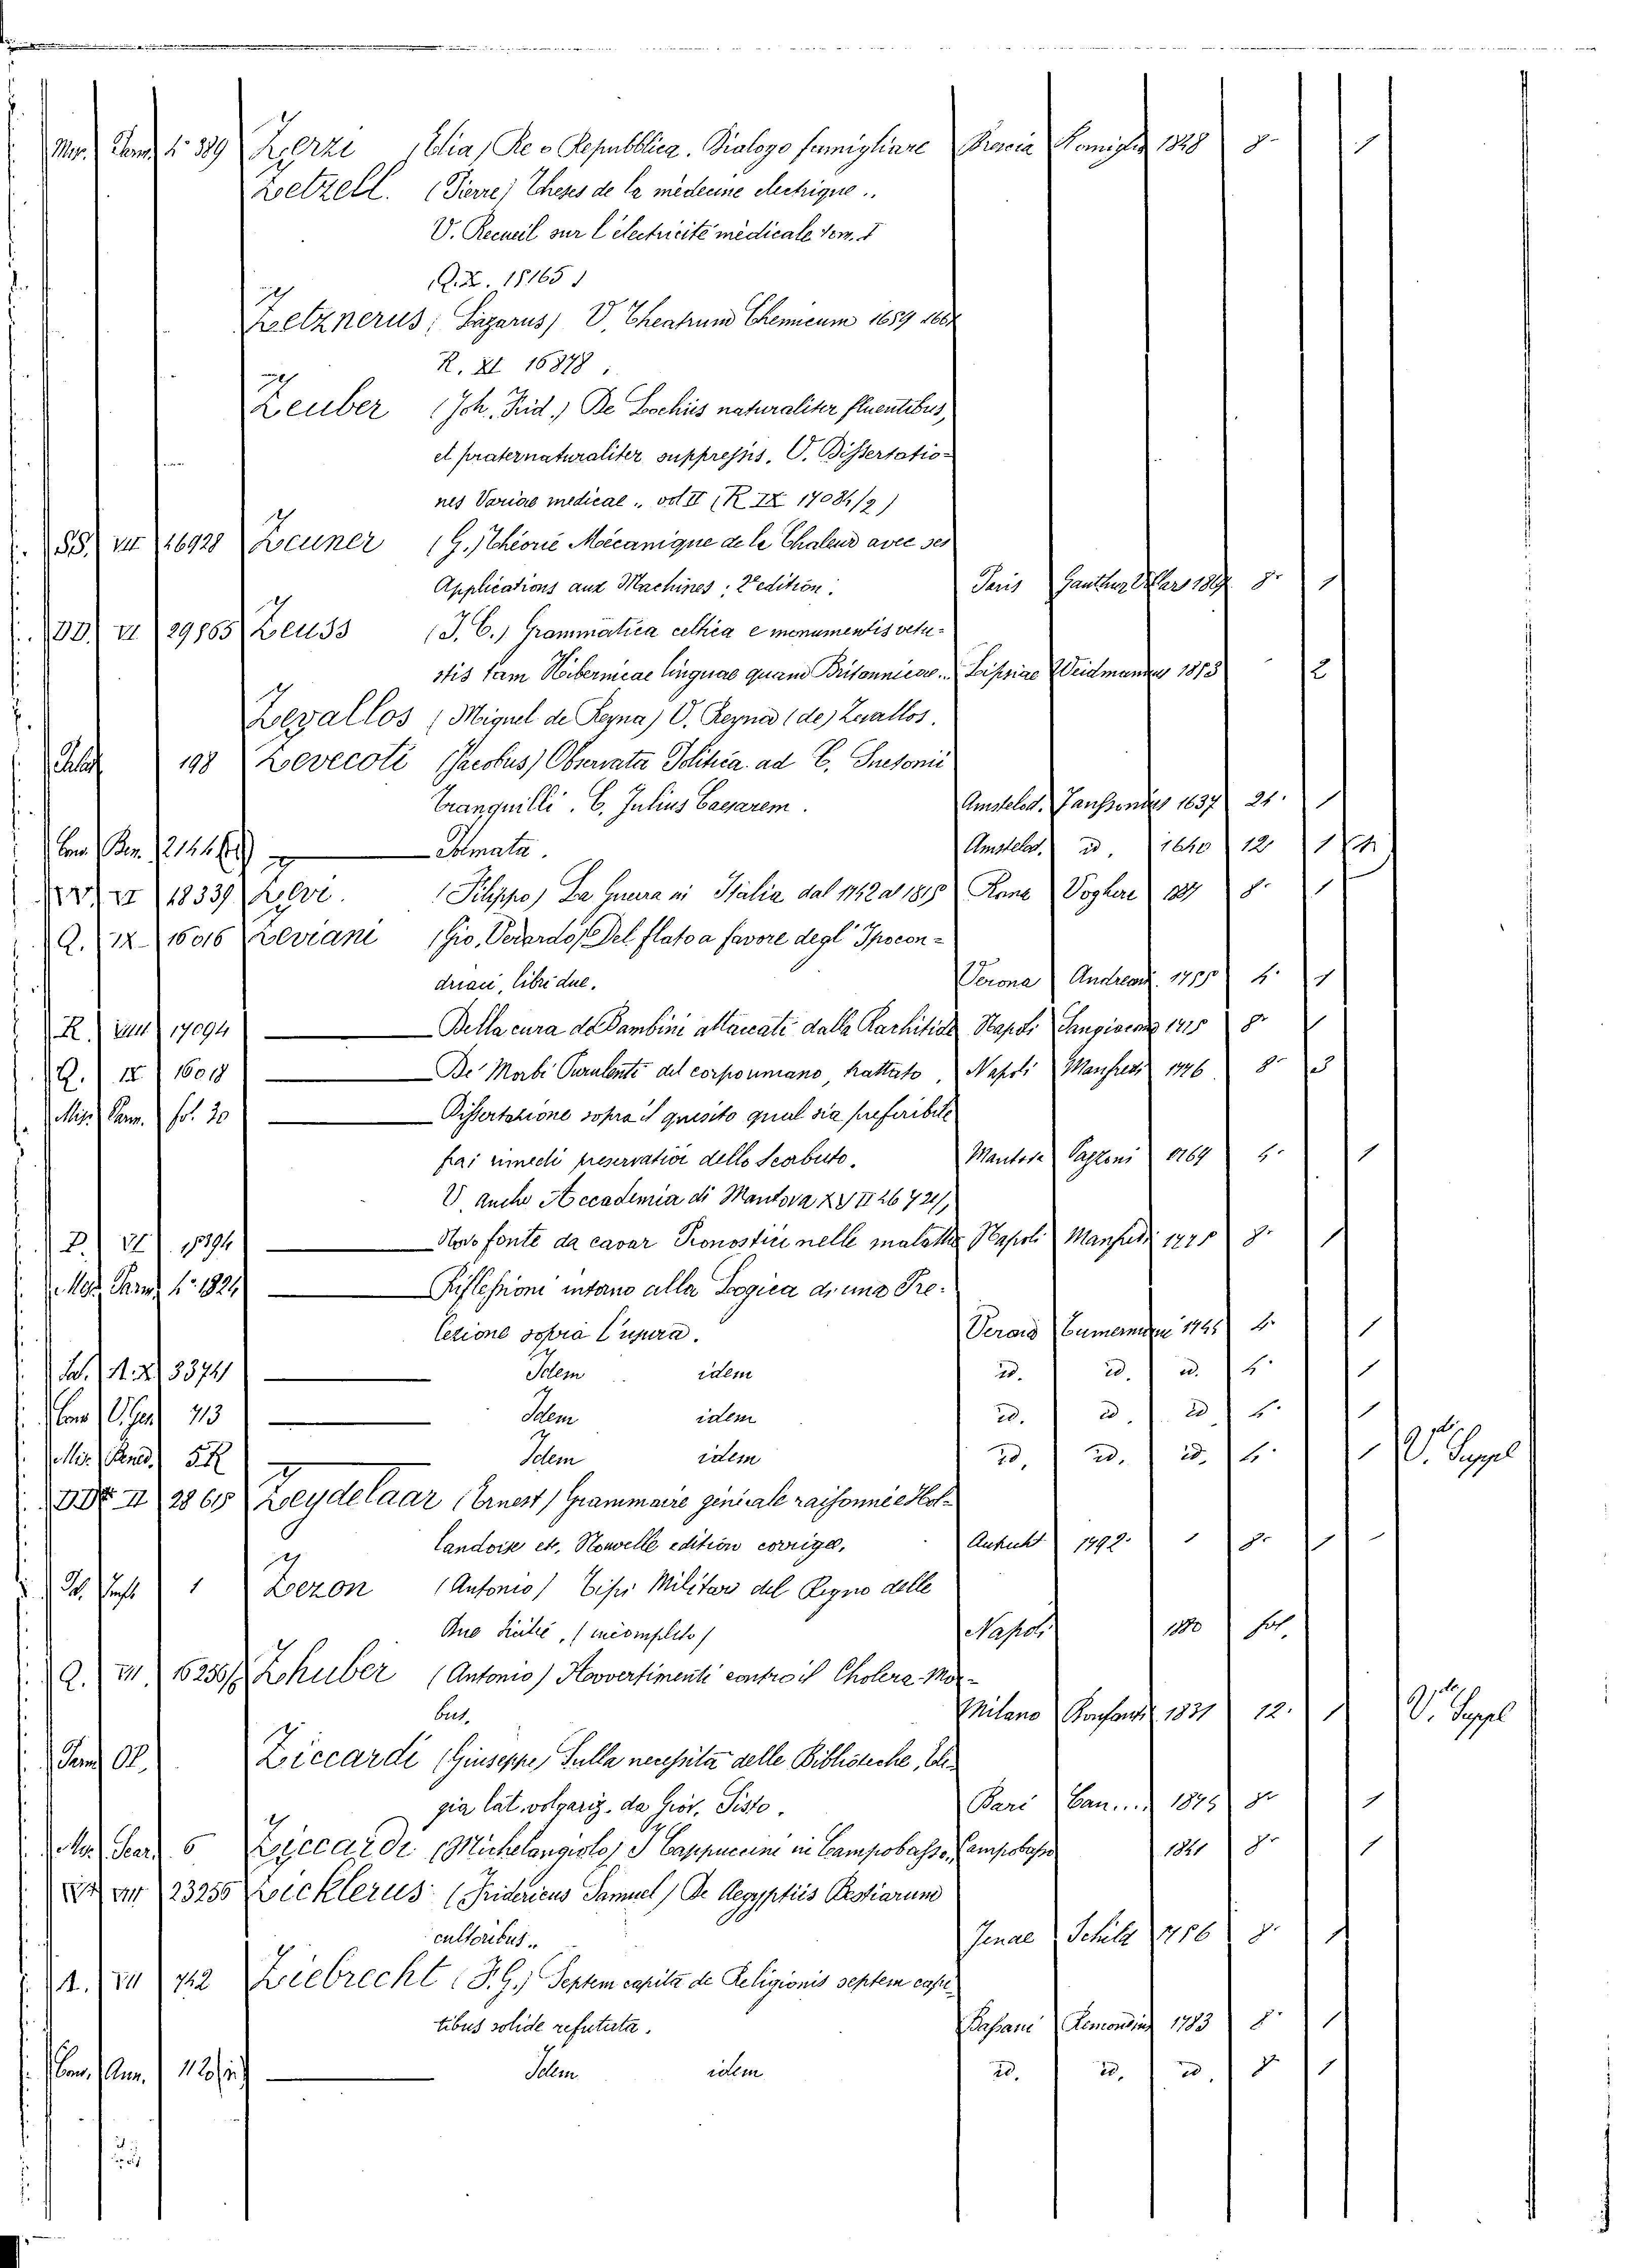 Mis. Parm. 4° 389 Zerzi (Elia) Re o Repubblica. Dialogo famigliare Brescia Romiglia 1848 8° 1
Zetzell. (Pierre) Theses de la médecine électrique..
V. Recueil sur l'électricité médicale tom. I
(Q. X. 15165)
Zetznerus (Lazarus) V. Theatrum Chemicum 1659 1661
R. XI 16878
Zeuber (Joh. Frid.) De Lochiis naturaliter fluentibus,
et praternaturaliter suppressis. V. Dissertatio=
nes Variae medicae.. vol II (R IX 17084/2)
SS. VII 26928 Zeuner (G.) Théorie Mécanique de la Chaleur avec ses
Applications aux Machines; 2e edition. Paris Gauthier Villars 1869 8° 1
DD. VI 29865 Zeuss (J. C.) Grammatica celtica e monumentis vetu=
stis tam Hibernicae linguae quam Britannicae.. Lipsiae Weidmannos 1853 2
Zevallos (Miguel de Reyna) V. Reyna (de) Zevallos.
198 Zevecoti (Jacobus) Observata Politica ad C. Suetonii
Tranquilli. C. Julius Caesarem. Amstelod. Janssonius 1637 24° 1
Amstelod. id. 1640 12° 1
VI 18339 Zevi. (Filippo) La Guerra in Italia dal 1742 al 1815 Roma Voghera 8° 1
Q. IX 16016 Zeviani (Gio. Verardo) Del flato a favore degl' Ipocon=
driaci, libri due. Verona Andreoni 1755 4° 1
R. 17094 Della cura de Bambini attaccati dalla Rachitide Napoli 8°
Q. IX 16018 De' Morbi Purulenti del corpo umano, trattato, Napoli Manfredi 8° 3
Mis. Parm. fol. 30 Dissertazione sopra il quesito qual sia preferibile
frai rimedi preservativi dello Scorbuto. Mantova Pazzoni 4° 1
V. anche Accademia di Mantova
Novo fonte da cavar Pronostici nelle malattie Napoli Manfredi 8° 1
Mis. Parm. 4° 1821 Riflessioni intorno alla Logica di una Pre=
lezione sopra l'usura. 4° 1
33741 Idem idem id. id. id. 4° 1
713 Idem idem id. id. id. 4° 1
Idem idem id. id. id. 4° 1 V. Suppl
DD II 28615 Zeydelaar (Ernest) Grammaire générale raisonnée Hol=
landoise et. Nouvelle edition corrigée, 8° 1
1 Zezon (Antonio) Tipi Militari del Regno delle
Due Sicilie, (incompleto) Napoli 1850 fol.
Q. III 16256 Zhuber (Antonio) Avvertimenti contro il Cholera-Mor=
bus. Milano 1831 12. 1 V. Suppl
Ziccardi (Giuseppe) Sulla necessità delle Biblioteche, Ele=
gia lat. volgariz. da Giov. Pisto. Bari Can.... 1875 8° 1
Zijccardi (Michelangiolo) I Cappuccini in Campobasso, Campobasso 1841 8° 1
23255 Zicklerus (Fridericus Samuel) De Aegyptiis Bestiarum
cultoribus.. Jenae Schill 1756 8° 1
A. VII 742 Ziebrecht (F. G.) Septem capita de Religionis septem capi=
tibus solide refutata. Bassani Remondini 1783 8° 1
Idem idem id. id. id. 8° 1